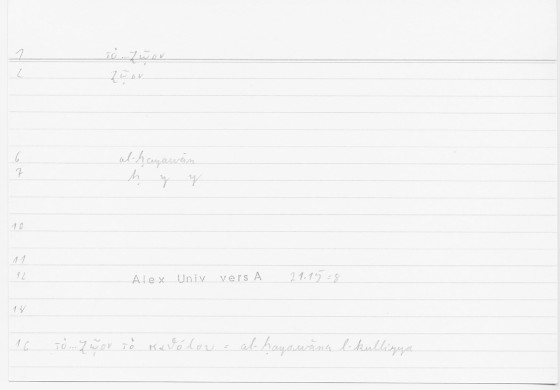 1 τὸ ζῷον
2 ζῷον
6 al-ḥayawān
7 ḥ y y
10
11
12 Alex Univ vers A 21.15-8
14
16 τὸ ζῷον τὸ καθόλου = al-ḥayawāna l-kulliyya